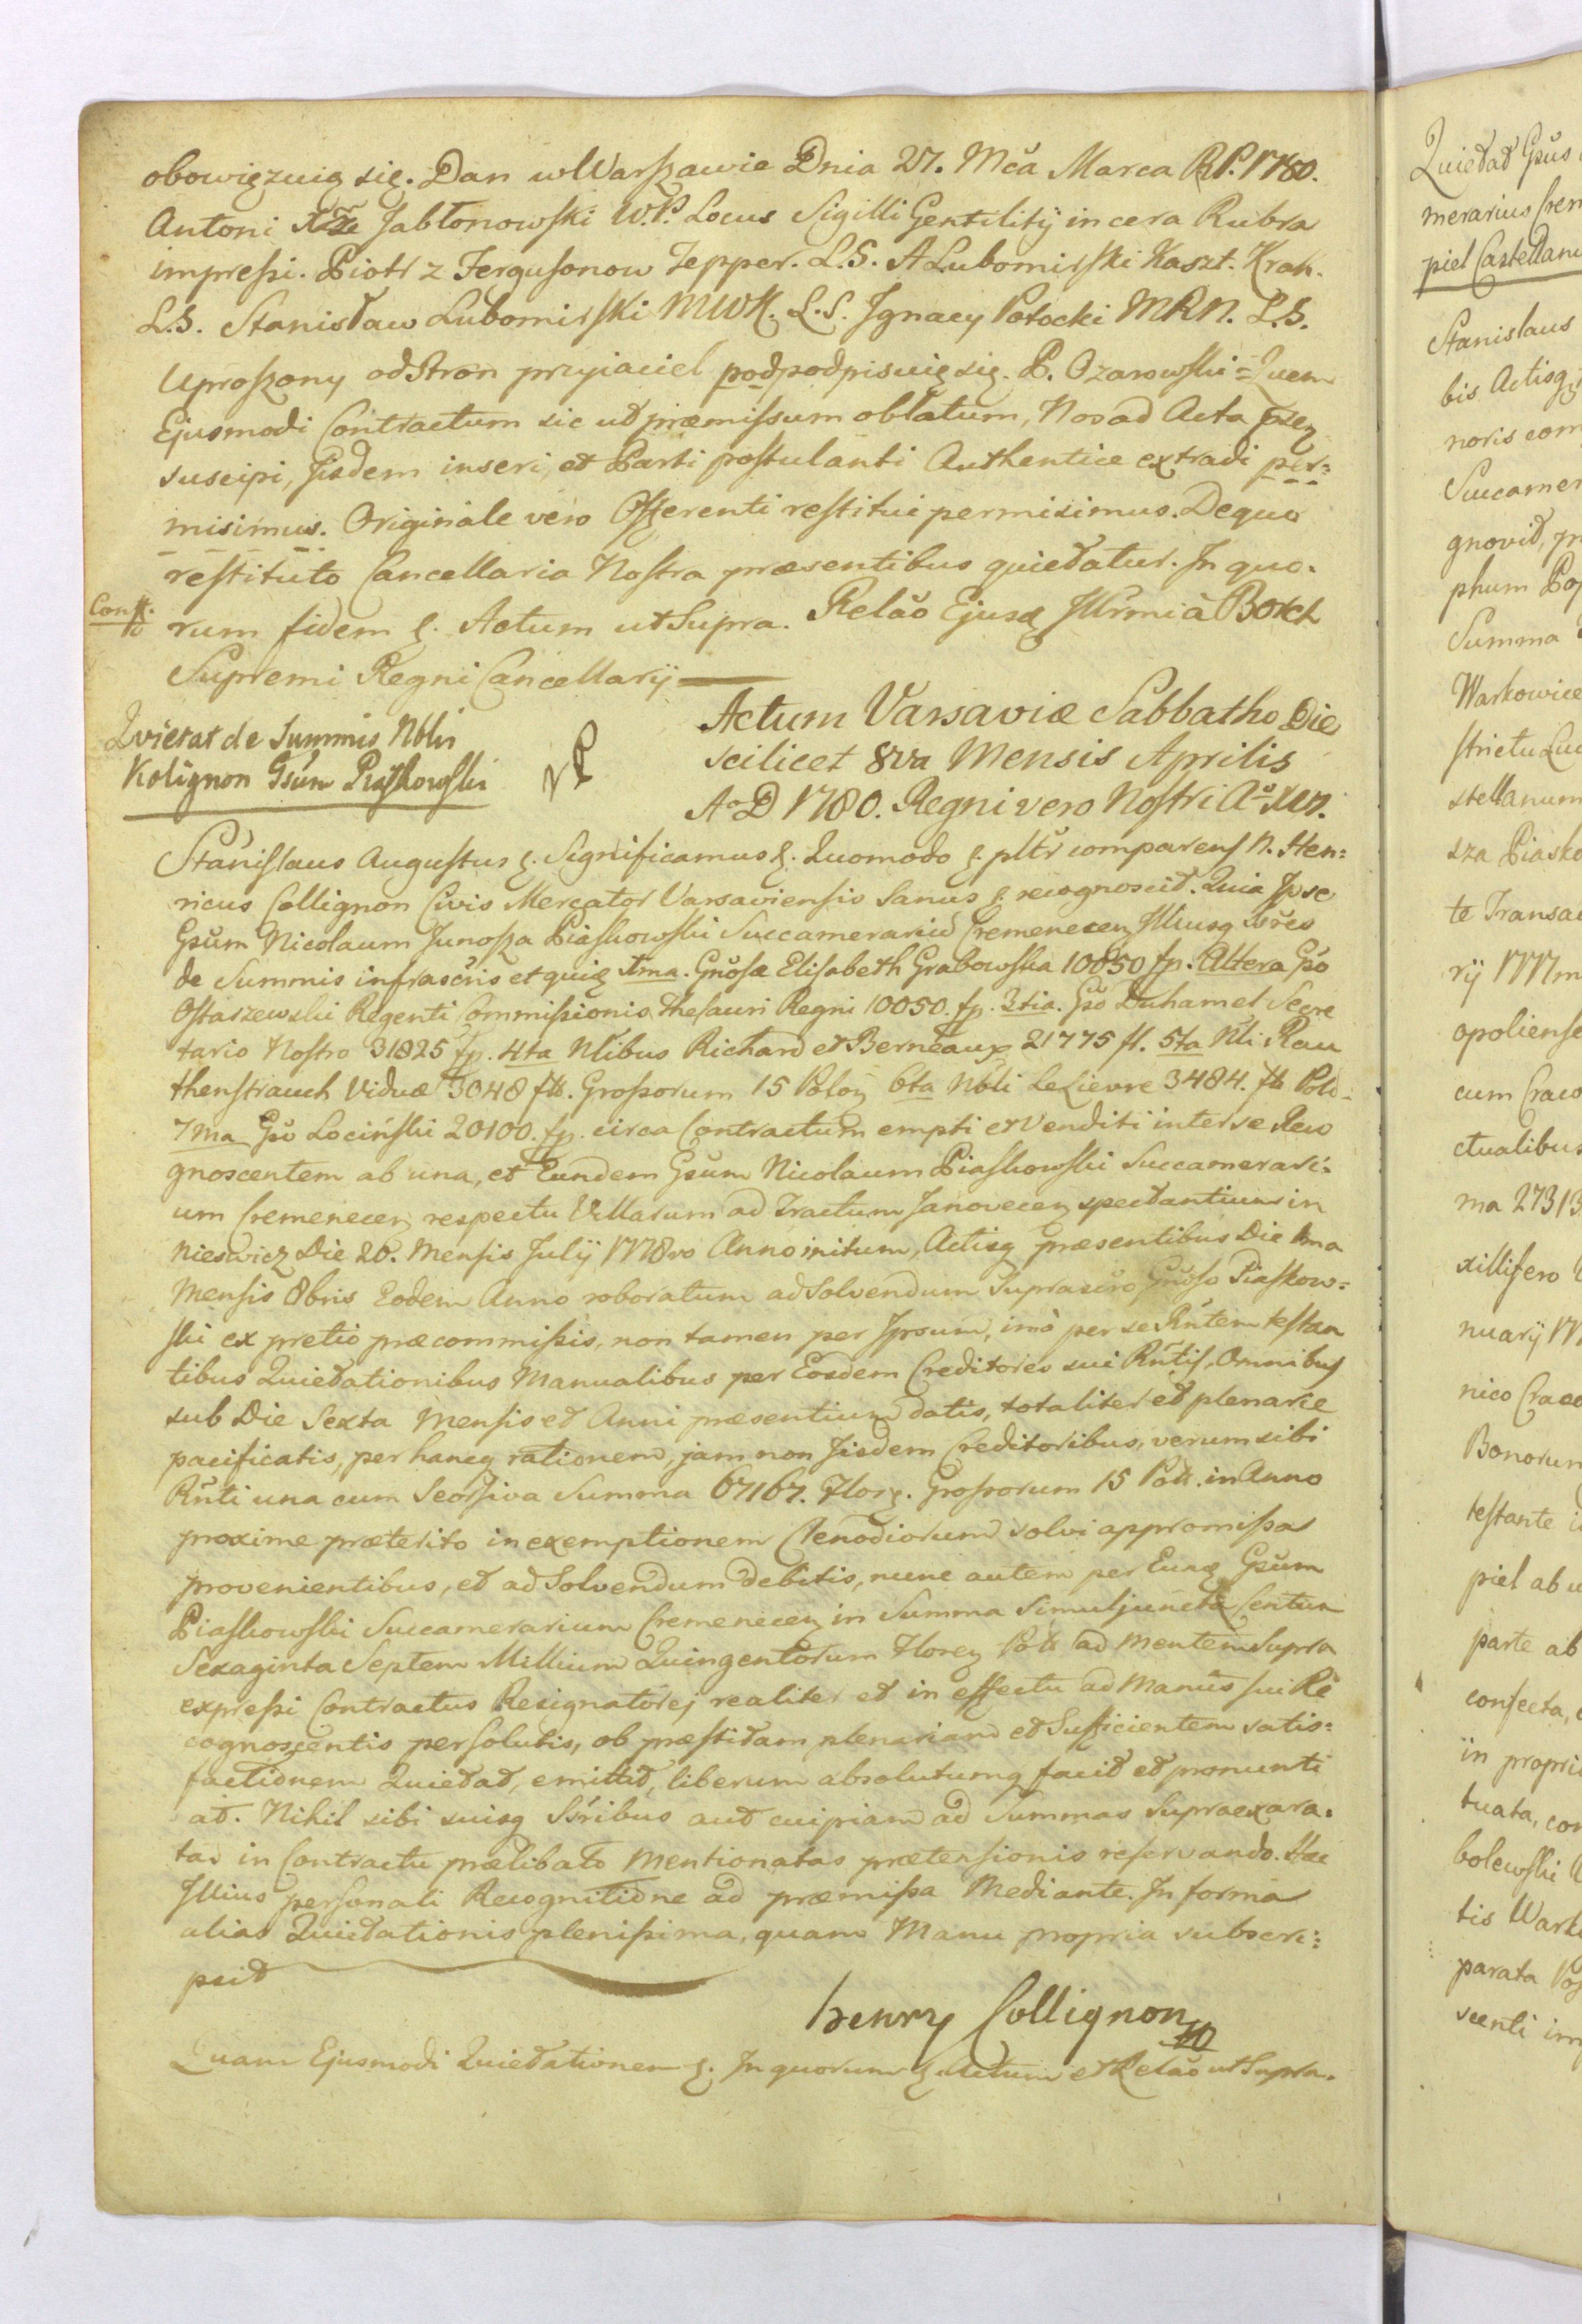 obowięzuię się. Dan w Warszawie Dnia 27. Mca Marca RP. 1780.
Antoni Xże Jabłonowski W.P. Locus Sigilli Gentilitij in cera Rubra
impressi. Piotr z Fergusonow Tepper. L.S. A Lubomirski Kaszt. Krak.
L.S. Stanisław Lubomirski MWK. L.S. Jgnacy Potocki MRN. L.S.
Uproszony od Stron przyiaciel podpodpisuię się. P. Ozarowski = Quem
Ejusmodi Contractum sic ut præmissum oblatum, Nos ad Acta
suscipi, Jisdem inseri, et Parti postulanti Authentice extradi per=
misimus. Originale vero Offerenti restitui permisimus. De quo
restituto Cancellaria Nostra præsentibus quietatur. Jn quo.
rum fidem &. Actum ut Supra. Relão Ejusq Jllrmi à Borch
Supremi Regni Cancellarij
Quietat de Summis Nblis
Kolignon Gsum Piaskowski
Actum Varsaviæ Sabbatho Die
scilicet 8va Mensis Aprilis
Ao D 1780. Regni vero Nostri Ao XVI.
Stanislaus Augustus &. Significamus &. Quomodo &. pltr comparens N. Hen=
ricus Collignon Civis Mercator Varsaviensis Sanus &. recognoscit. Quia Jpse
Gsum Nicolaum Junosza Piaskowski Succamerariu Cremenecen Jlliusq Ssres
de Summis infrascris et quię 1ma. Gnosæ Elisabeth Grabowska 10850 fp. Altera Gso
Ostaszewski Regenti Commissionis Thesauri Regni 10050. fp. 3tia. Gso Duhamel Secre
tario Nostro 31825 fp. 4ta Nlibus Richard et Berneaux 21775 fl. 5ta Nli Rau
thenstrauch Viduæ 3048 fls. Grossorum 15 Polon 6ta Nbli Leliewre 3484. fls Polo-
7ma Gso Lociński 20100. fp. circa Contractum empti et Venditi inter se Reco
gnoscentem ab una, et Eundem Gsum Nicolaum Piaskowski Succamerari=
um Cremenecen respectu Villarum ad Tractum Janovecen spectantium in
Nieswicz Die 20. Mensis Julij 1778vo Anno initum, Actisq præsentibus Die 1ma
Mensis 8bris Eodem Anno roboratum ad Solvendum Suprascro Gnoso Piaskow=
ski ex pretio præcommissis, non tamen per Jpsum, imò per se Rntem testan
tibus Quietationibus Manualibus per Eosdem Creditores sui Rntis, Omnibus
sub Die Sexta Mensis et Anni præsentium datis, totaliter et plenarie
pacificatis, per hancq rationem, jam non Jisdem Creditoribus, verum sibi
Rnti una cum Seorsiva Summa 67167. Flor. Grossorum 15 Polt. in Anno
proxime præterito in exemptionem Clenodiorum solvi appromissa
provenientibus, et ad Solvendum debitis, nunc autem per Eunq Gsum
Piaskowski Succamerarium Cremenecen in Summa Simul juncta Centum
Sexaginta Septem Millium Quingentorum Floren Polt ad Mentem Supra
expressi Contractus Resignatorej realiter et in effectu ad Manus sui Re
cognoscentis persolutis, ob præstitam plenariam et Sufficientem satis=
factionem Quietat, emittit, liberum absolutumq facit et pronunti
at. Nihil sibi suisq Ssribus aut cuipiam ad Summas Supraexara=
tas in Contractu prælibato Mentionatas prætensionis reservando. Hac
Jllius personali Recognitione ad præmissa Mediante. Jn forma
alias Quietationis plenissima, quam Manu propria subscri=
psit
henry Collignon
Quam Ejusmodi Quietationem &. Jn quorum & Actum et Relão ut Supra.
Quietat Gsus
merarius Crem
piel Castellanu
Stanislaus
bis Actisq
noris com
Succamer
gnovit, pr
phum Pop
Summa
Warkowice
strictu Luc
stellanum
sza Piasko
te Transac
rij 1777m
opoliense
cum Craco
ctualibus
ma 27313
xillifero
nuarij 17
nico Craco
Bonorum
testante i
piel ab u
parte ab
confecta,
in propri
tuata, con
bolewski
tis Wark
parata Pos
scenti im